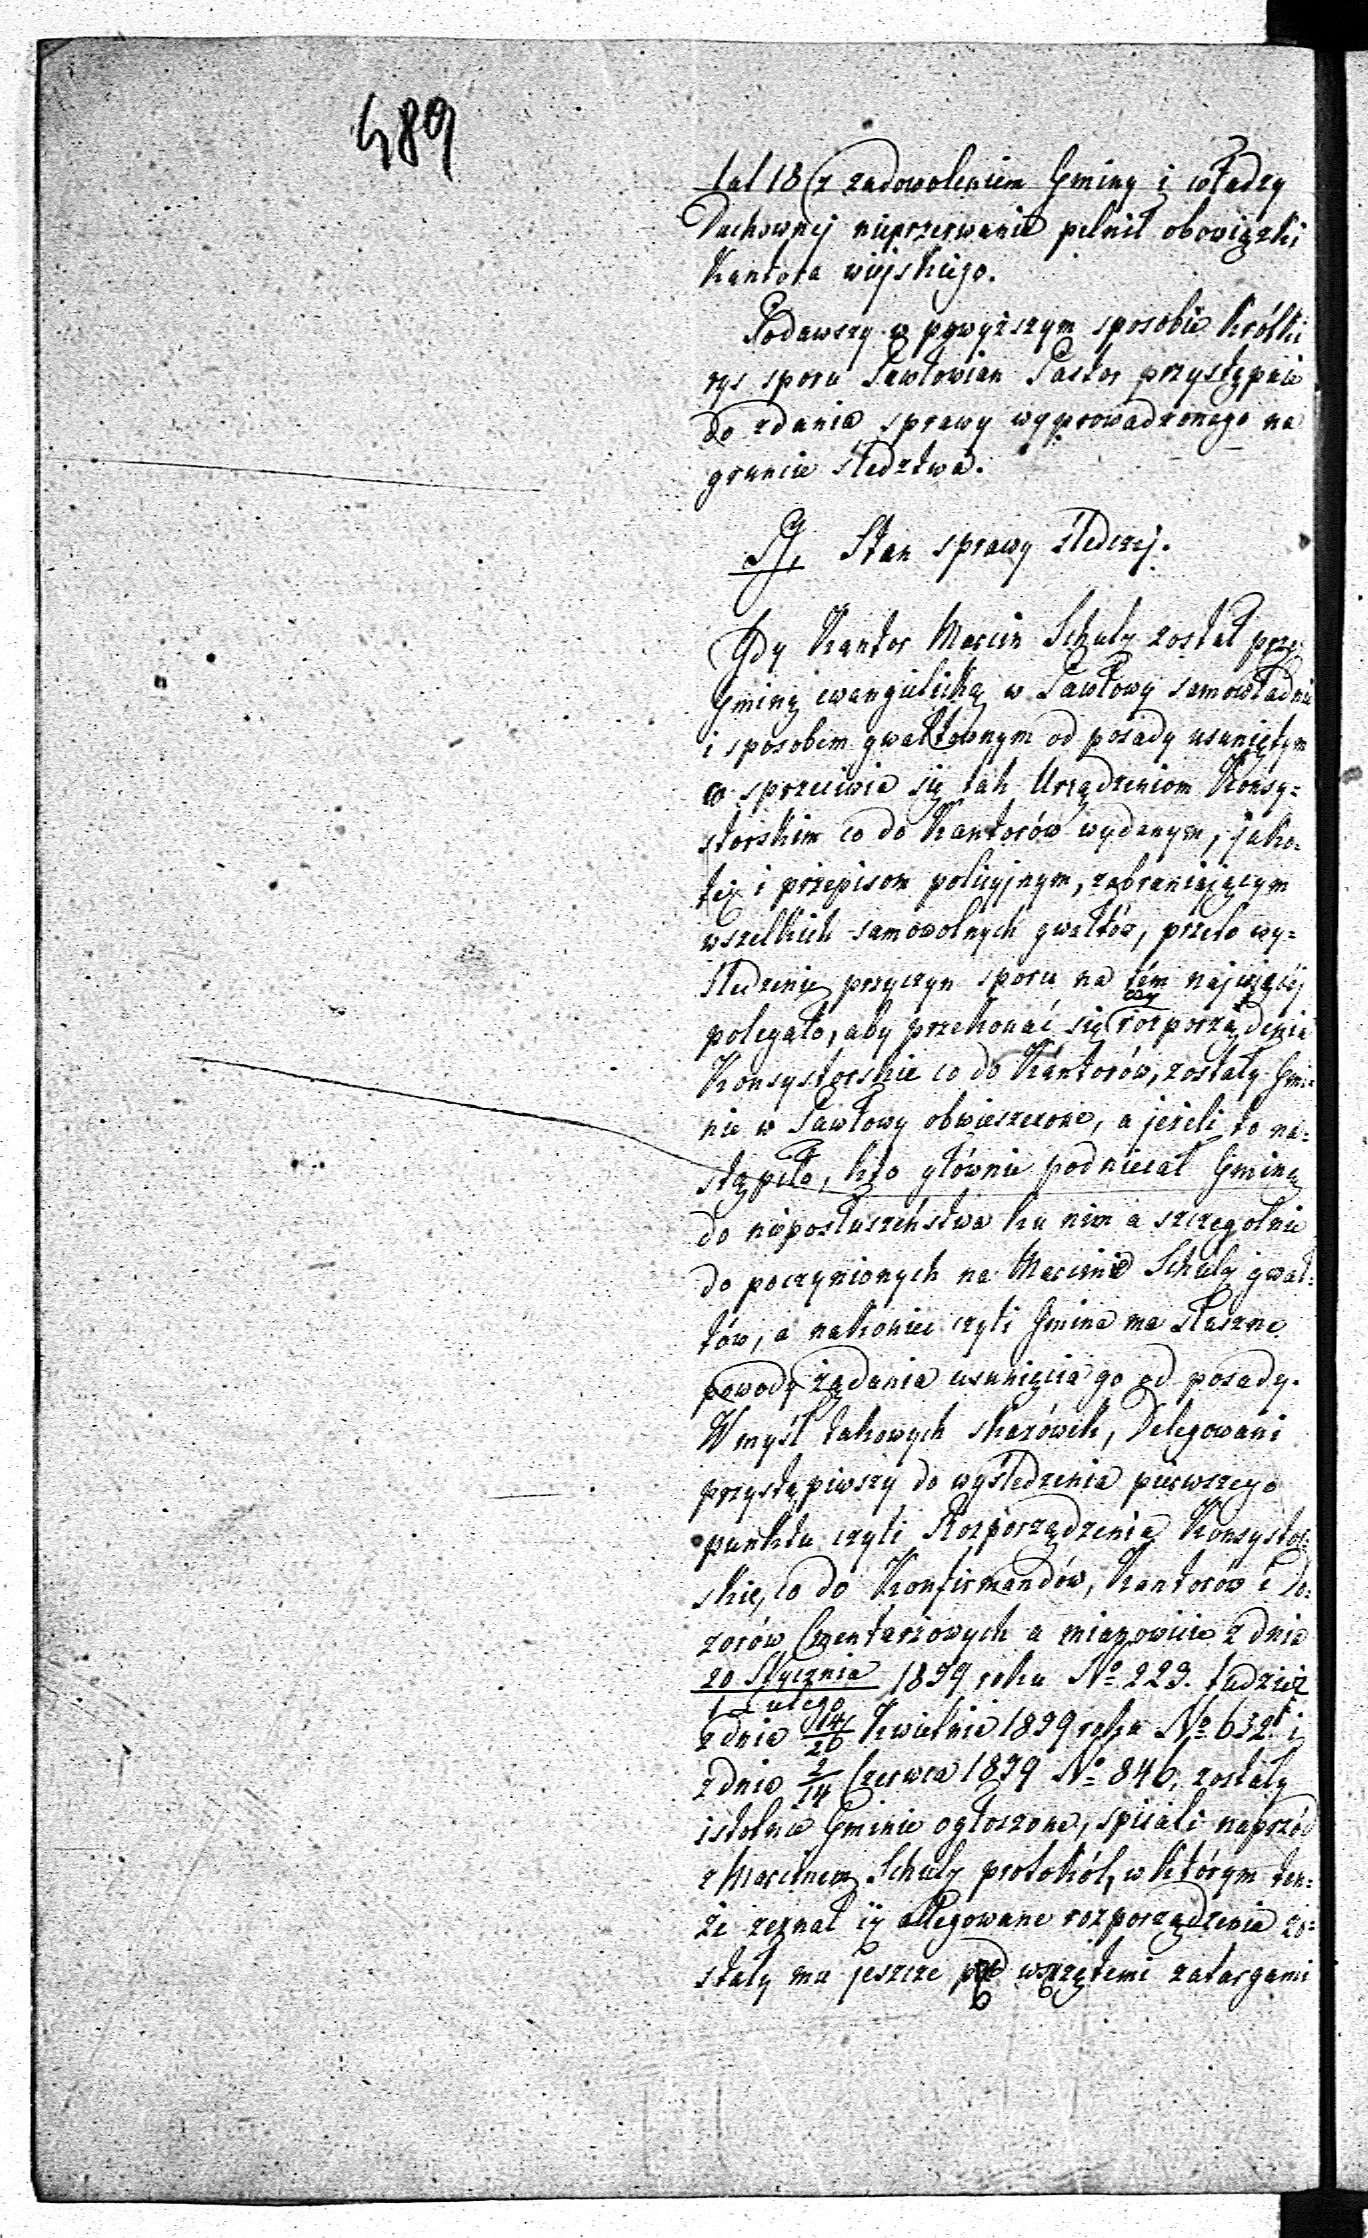 489
lat 18 z zadowoleniem Gminy i władzy
Duchownej nieprzerwanie pełnił obowiązki
Kantora wiejskiego.
Podawszy w powyższym sposobie krótki
rys sporu Pawłowian Pastor przystępuie
do zdania sprawy wyprowadzonego na
gruncie śledztwa.
Stan sprawy śledczej.
Gdy Kantor Marcin Schulz został przez
Gminę ewangielicką w Pawłowy samowładnie
i sposobem gwałtownym od posady usuniętym
co sprzeciwia się tak Urządzeniom Konsy=
storskim co do Kantorów wydanym, jako=
też i przepisom policyjnym, zabraniającym
wszelkich samowolnych gwałtów, przeto wy=
śledzenie przyczyn sporu na tém najwięcéj
polegało, aby przekonać się czy rozporządzenia
Konsystorskie co do Kantorów, zostały Gmi=
nie w Pawłowy obwieszczone, a jeżeli to na=
stąpiło, kto głównie podniecał Gminę
do nieposłuszeństwa ku nim a szczególnie
do poczynionych na Marcinie Schulz gwał=
tów, a nakoniec czyli Gmina ma słuszne
powody żądania usunięcia go od posady.
W myśl takowych skazówek, Delegowani
przystąpiwszy do wyśledzenia pierwszego
punktu czyli Rozporządzenia Konsystor=
skie, co do Konfirmandów, Kantorów i Do=
zorów Cmentarzowych a mianowicie z dnia
20 Stycznia / 1 Lutego 1839 roku № 223. tudzież
z dnia 14/26 Kwietnia 1839 roku № 632. i
z dnia 2/14 Czerwca 1839 № 846, zostały
istotnie Gminie ogłoszone, spisali naprzód
z Marcinem Schulz protokół, w którym ten=
że zeznał iż allegowane rozporządzenia zo=
stały mu jeszcze przed wszczętemi zatargami